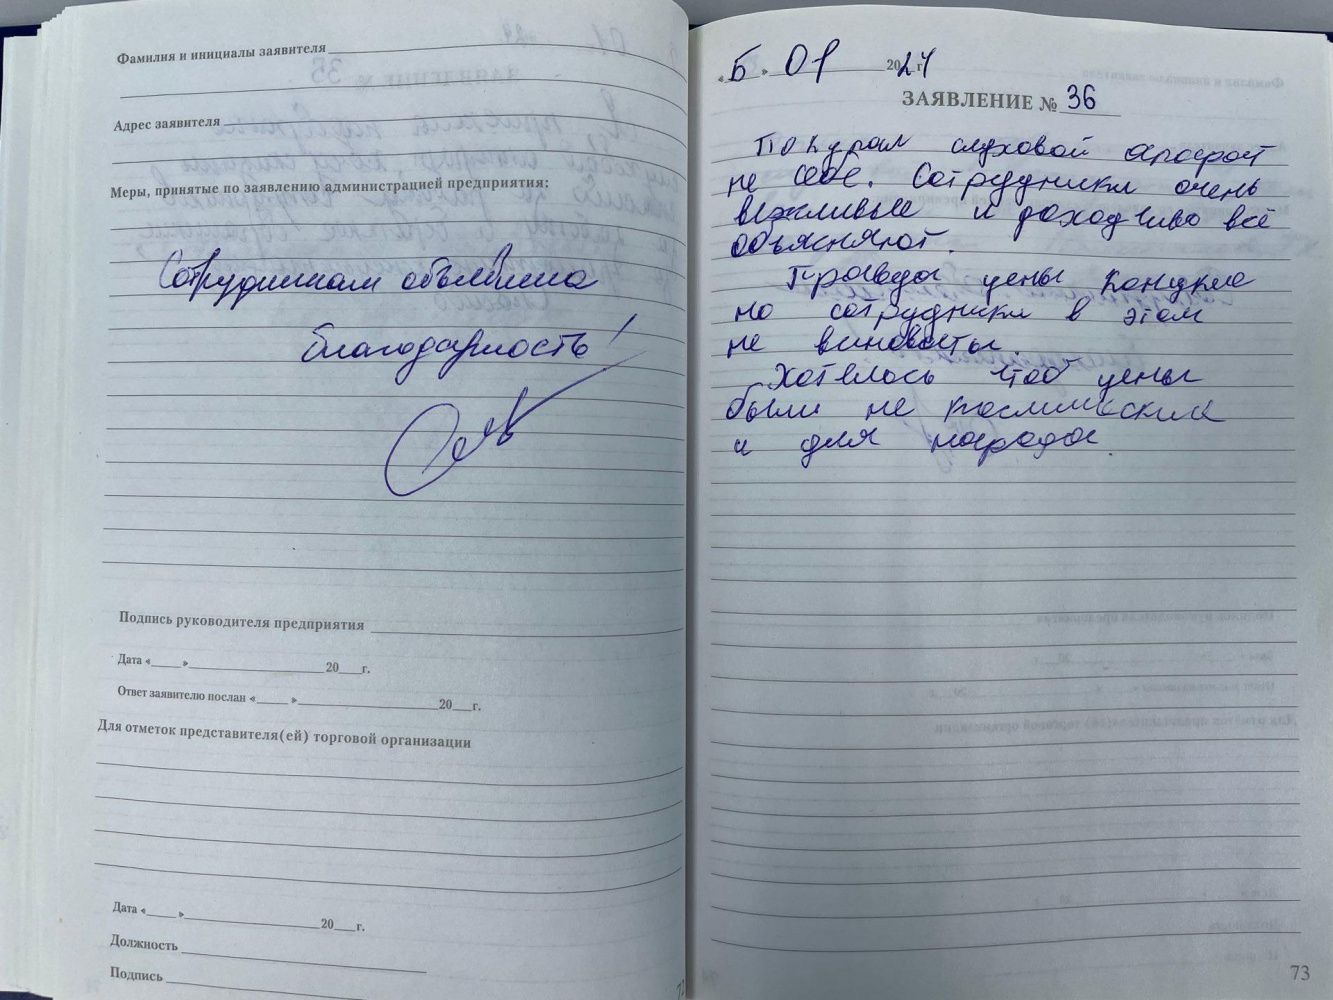 Фамилия и инициалы заявителя
Адрес заявителя
Меры, принятые по заявлению администрацией предприятия:
Сотрудникам объявлена
благодарность!
Подпись руководителя предприятия
Дата «___» ___ 20__г.
Ответ заявителю послан «___» ___ 20__г.
Для отметок представителя(ей) торговой организации
Дата «___» ___ 20__г.
Должность
Подпись
72
«5» 01 2024 г
ЗАЯВЛЕНИЕ № 36
Покупал слуховой апарат
не себе. Сотрудники очень
вежливые и доходчиво всё
объясняют.
Правда цены
но сотрудники в этом
не виноваты
Хотелось чтоб цены
были не космические
а для народа.
73